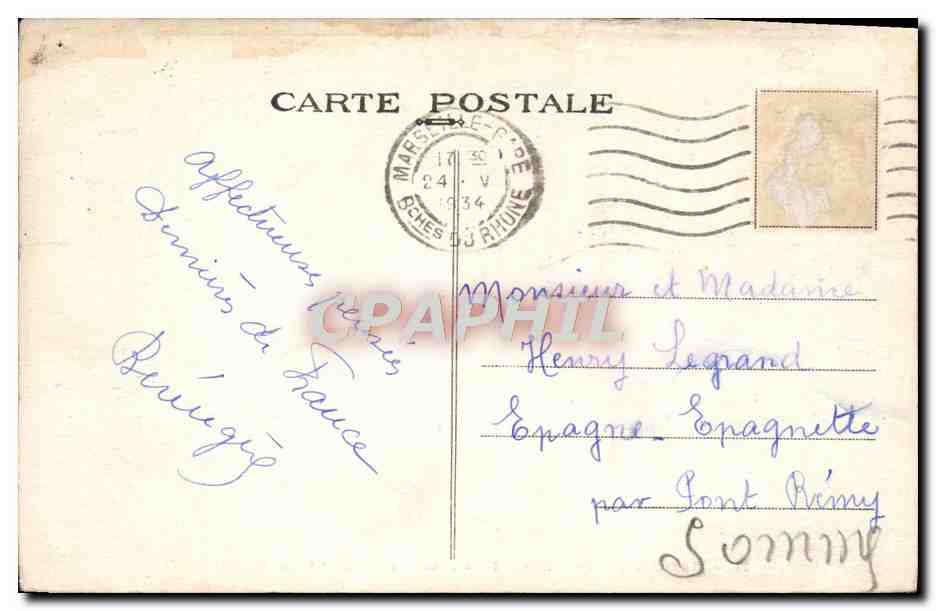 CARTE POSTALE
MARSEILLE-GARE
17 30
24 · V
1934
BCHES DU RHÔNE
Affectueuses pensées
Dernières de France
Bérengère
CPAPHIL
Monsieur et Madame
Henry Legrand
Epagne-Epagnette
par Pont Rémy
Somme